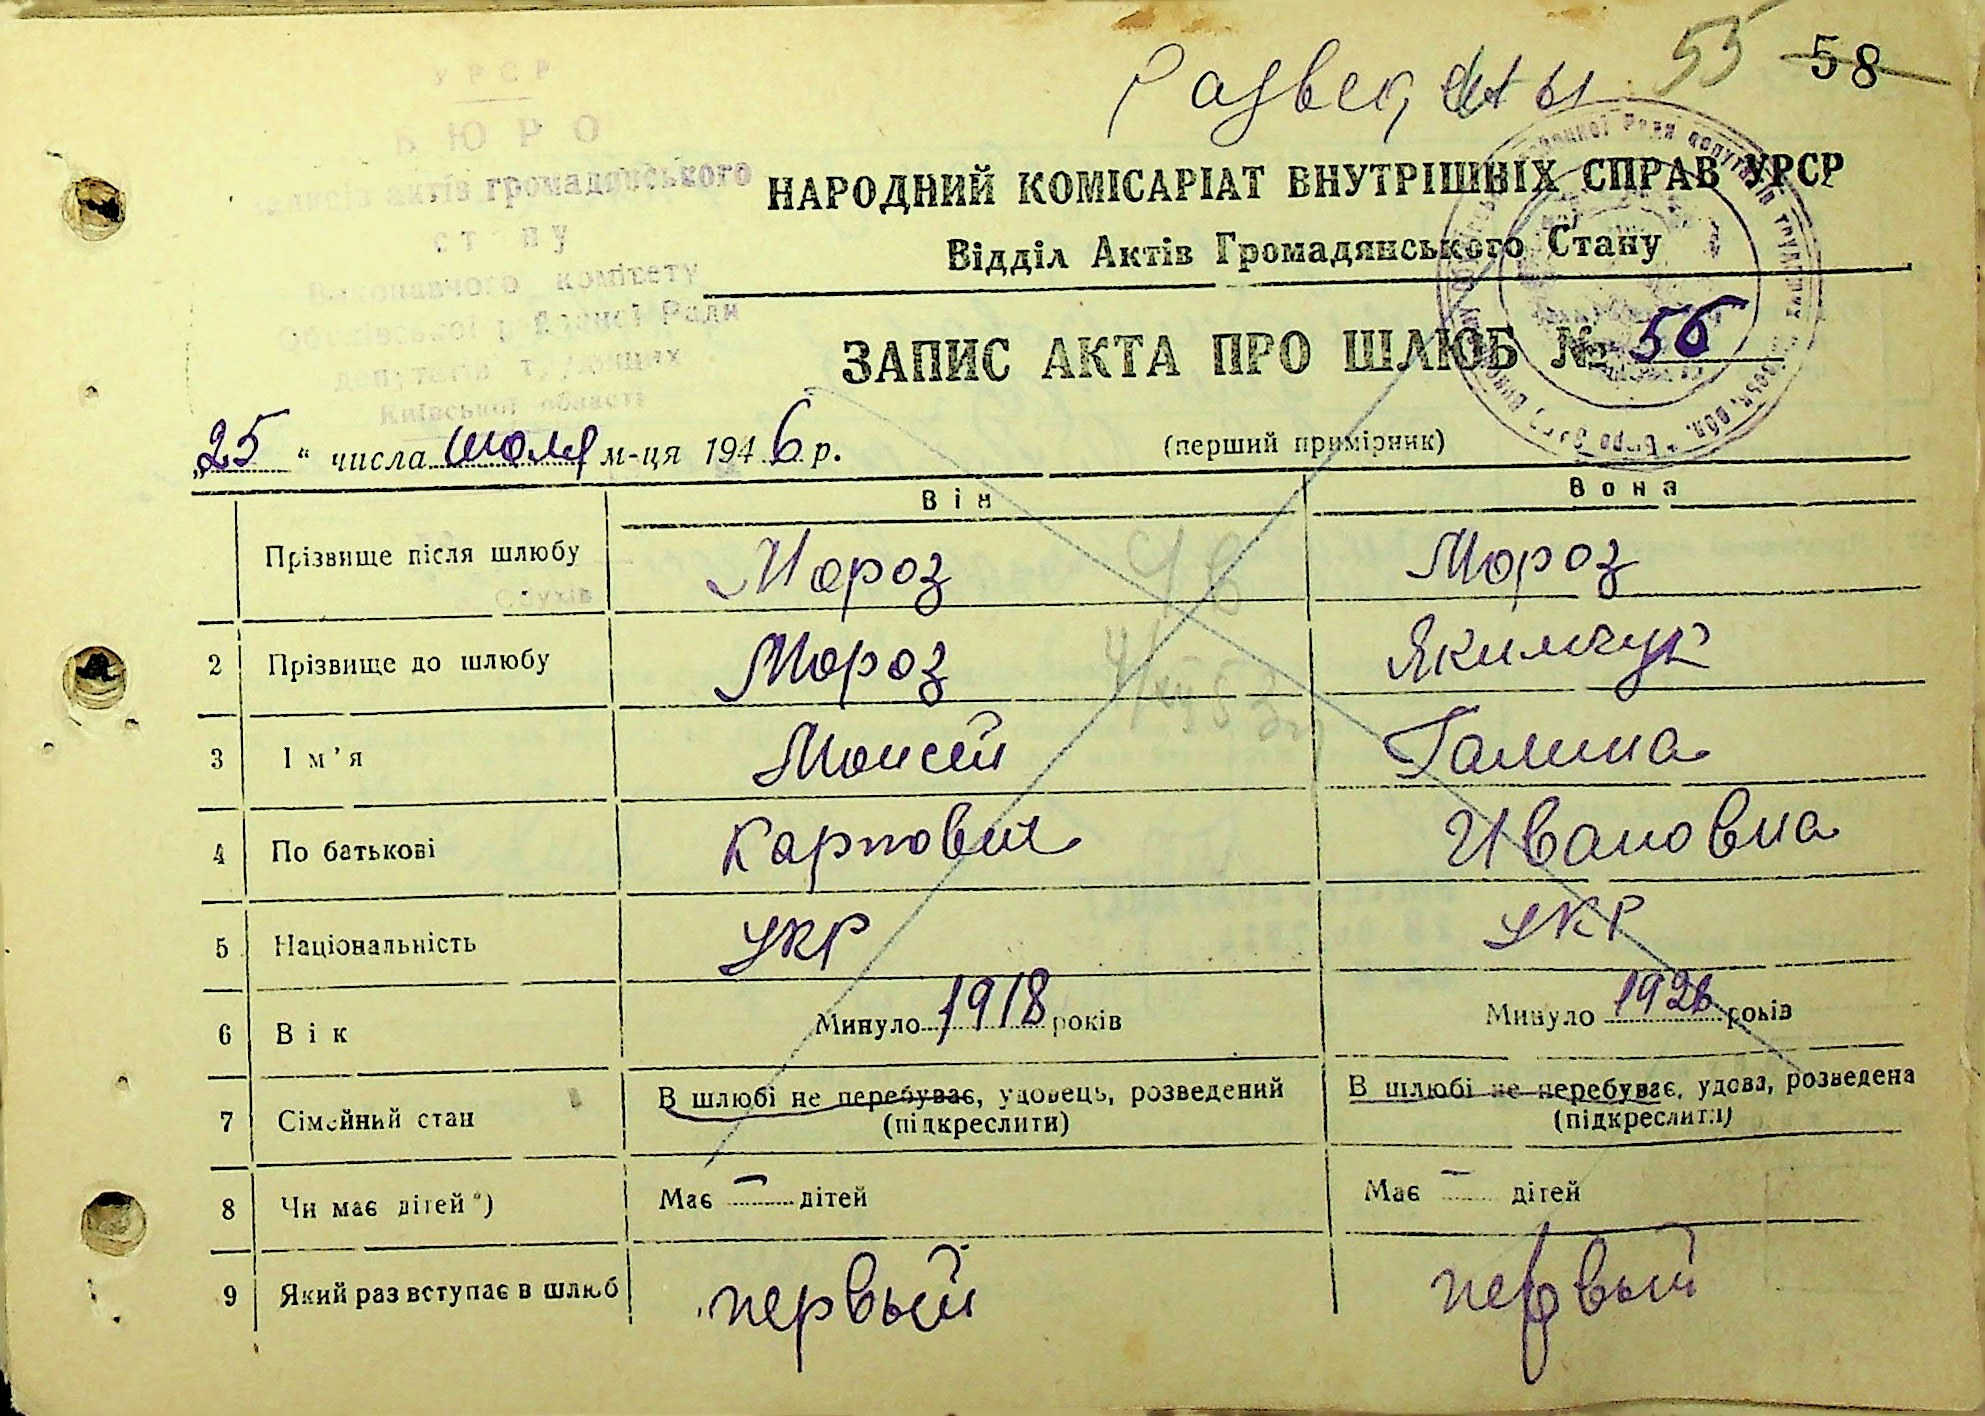 Разведены 55 58
УРСР
БЮРО
записів актів громадянського
стану
Виконавчого комітету
Обухівської районної Ради
депутатів трудящих
Київської області
Обухів
НАРОДНИЙ КОМІСАРІАТ ВНУТРІШНІХ СПРАВ УРСР
Відділ Актів Громадянського Стану
ЗАПИС АКТА ПРО ШЛЮБ № 56
„25“ числа июля м-ця 1946 р. (перший примірник)
Він Вона
Прізвище після шлюбу Мороз Мороз
2 Прізвище до шлюбу Мороз Якимчук
3 Ім'я Моисей Галина
4 По батькові Карпович Ивановна
5 Національність укр укр
6 Вік Минуло 1918 років Минуло 1926 років
7 Сімейний стан В шлюбі не перебуває, удовець, розведений В шлюбі не перебуває, удова, розведена
(підкреслити) (підкреслити)
8 Чи має дітей *) Має — дітей Має — дітей
9 Який раз вступає в шлюб первый первый